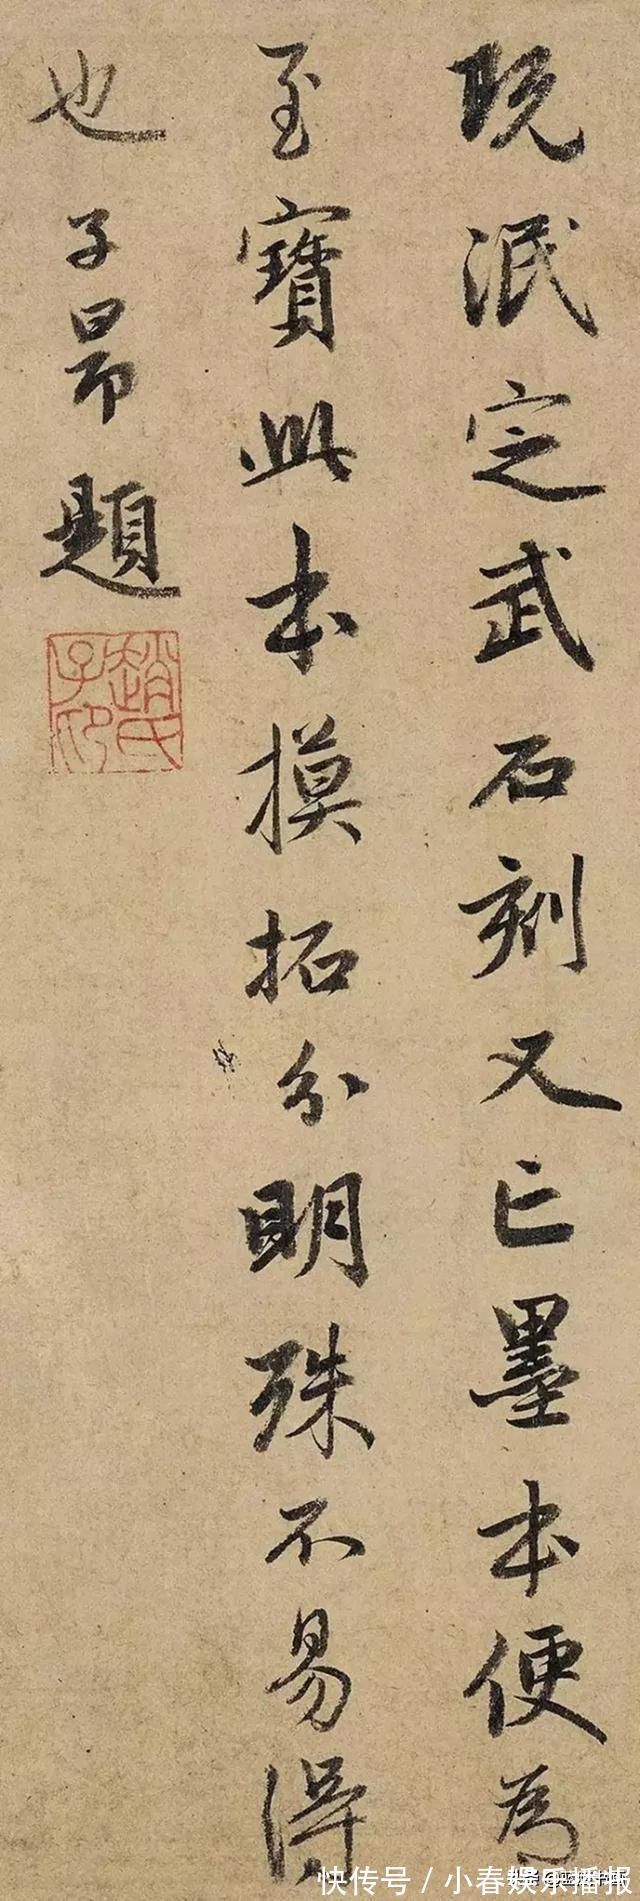 既泯定武石刻又亡墨本便為
至寶此本摸拓分明殊不易得
也子昂題
趙氏子印
快传号/小春娱乐播报